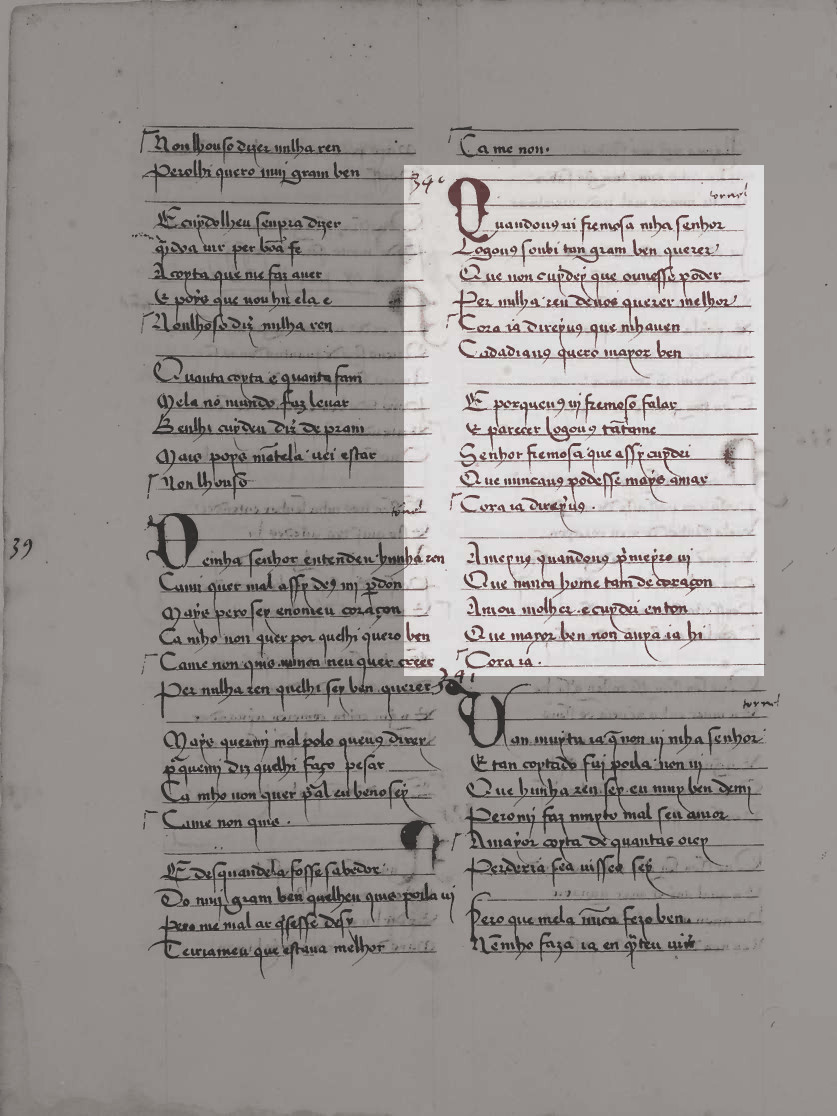 Nonlhouso dizer nulha ren
Perolhi quero muj gram ben
E cuydolheu senpra dizer
q̃ida uir per boã fe
A coyta que me faz auer
E poys que nou hir ela e
Nonlhoso diz̃ nulha ren
Quanta coyta e quanta fam
Mela no mundo faz leuar
Benlhi cuydeu diz̃ de pram
Mais poys mãtela uei estar
Nonlhouso
39
tornel
Deinha senhor entendeu hunhã ren
Cami quer mal assy de9 mi p̱don
Mays pero sey enomeu coraçon
Ca mho non quer por quelhi quero ben
Came non quis nunca neu quer creer
Per nulha ren quelhi sey ben querer
Mays quermj mal polo queu9 direy
p̃quemj diz quelhi faço pesar
Ca mho non quer p̃al eu beno sey
Came non quis.
E desquandela fosse sabedor
Do muj gram ben quelheu quis poila uj
Pero me mal ar q̃sesse desy
Terriameu que estaua melhor
Ca me non.
390
tornel
Quandou9 ui fremosa mha senhor
Logou9 soubi tan gram ben querer
Que non cuydey que ouuesse poder
Per nulha ren deuos querer melhor
Cora ia direyu9 que mhauen
Cadadiau9 quero mayor ben
E porqueu9 uj fremoso falar
e parecer logou9 tãtame
Senhor fremosa que assy cuydei
Que nuncau9 podesse mays amar
Cora ia direyu9.
Ameyu9 quandou9 p̃meyro uj
Que nunca home tam de coraçon
Amou molher. e cuydei enton
Que mayor ben non auya ia hi
Cora ia.
391
tornel
Uan muytu ia q̃ non uj mha senhor
E tan coytado fuj poila non uj
Que hunha ren sey eu muy ben demj
Peromj faz muyto mal seu amor
A mayor coyta de quantas oiey
Perderia sea uisse e sey
Pero que mela nũca fezo ben.
Nẽmho fara ia en q̃nteu uiu̾